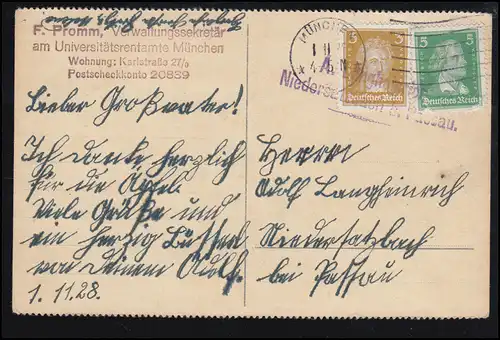 F. Fromm, Verwaltungssekretär
am Universitätsrentamte München
Wohnung: Karlstraße 27/0
Postscheckkonto 20889
MÜNCHE
3
Deutsches Reich
5 5
Deutsches Reich
Niedersa Passau.
Lieber Großvater!
Ich danke herzlich
für die Äpfel.
Viele Grüße und
ein herzig Bussel
von Deinem Adolf.
1. 11. 28.
Herrn
Adolf Langheinrich
Niedersatzbach
bei Passau